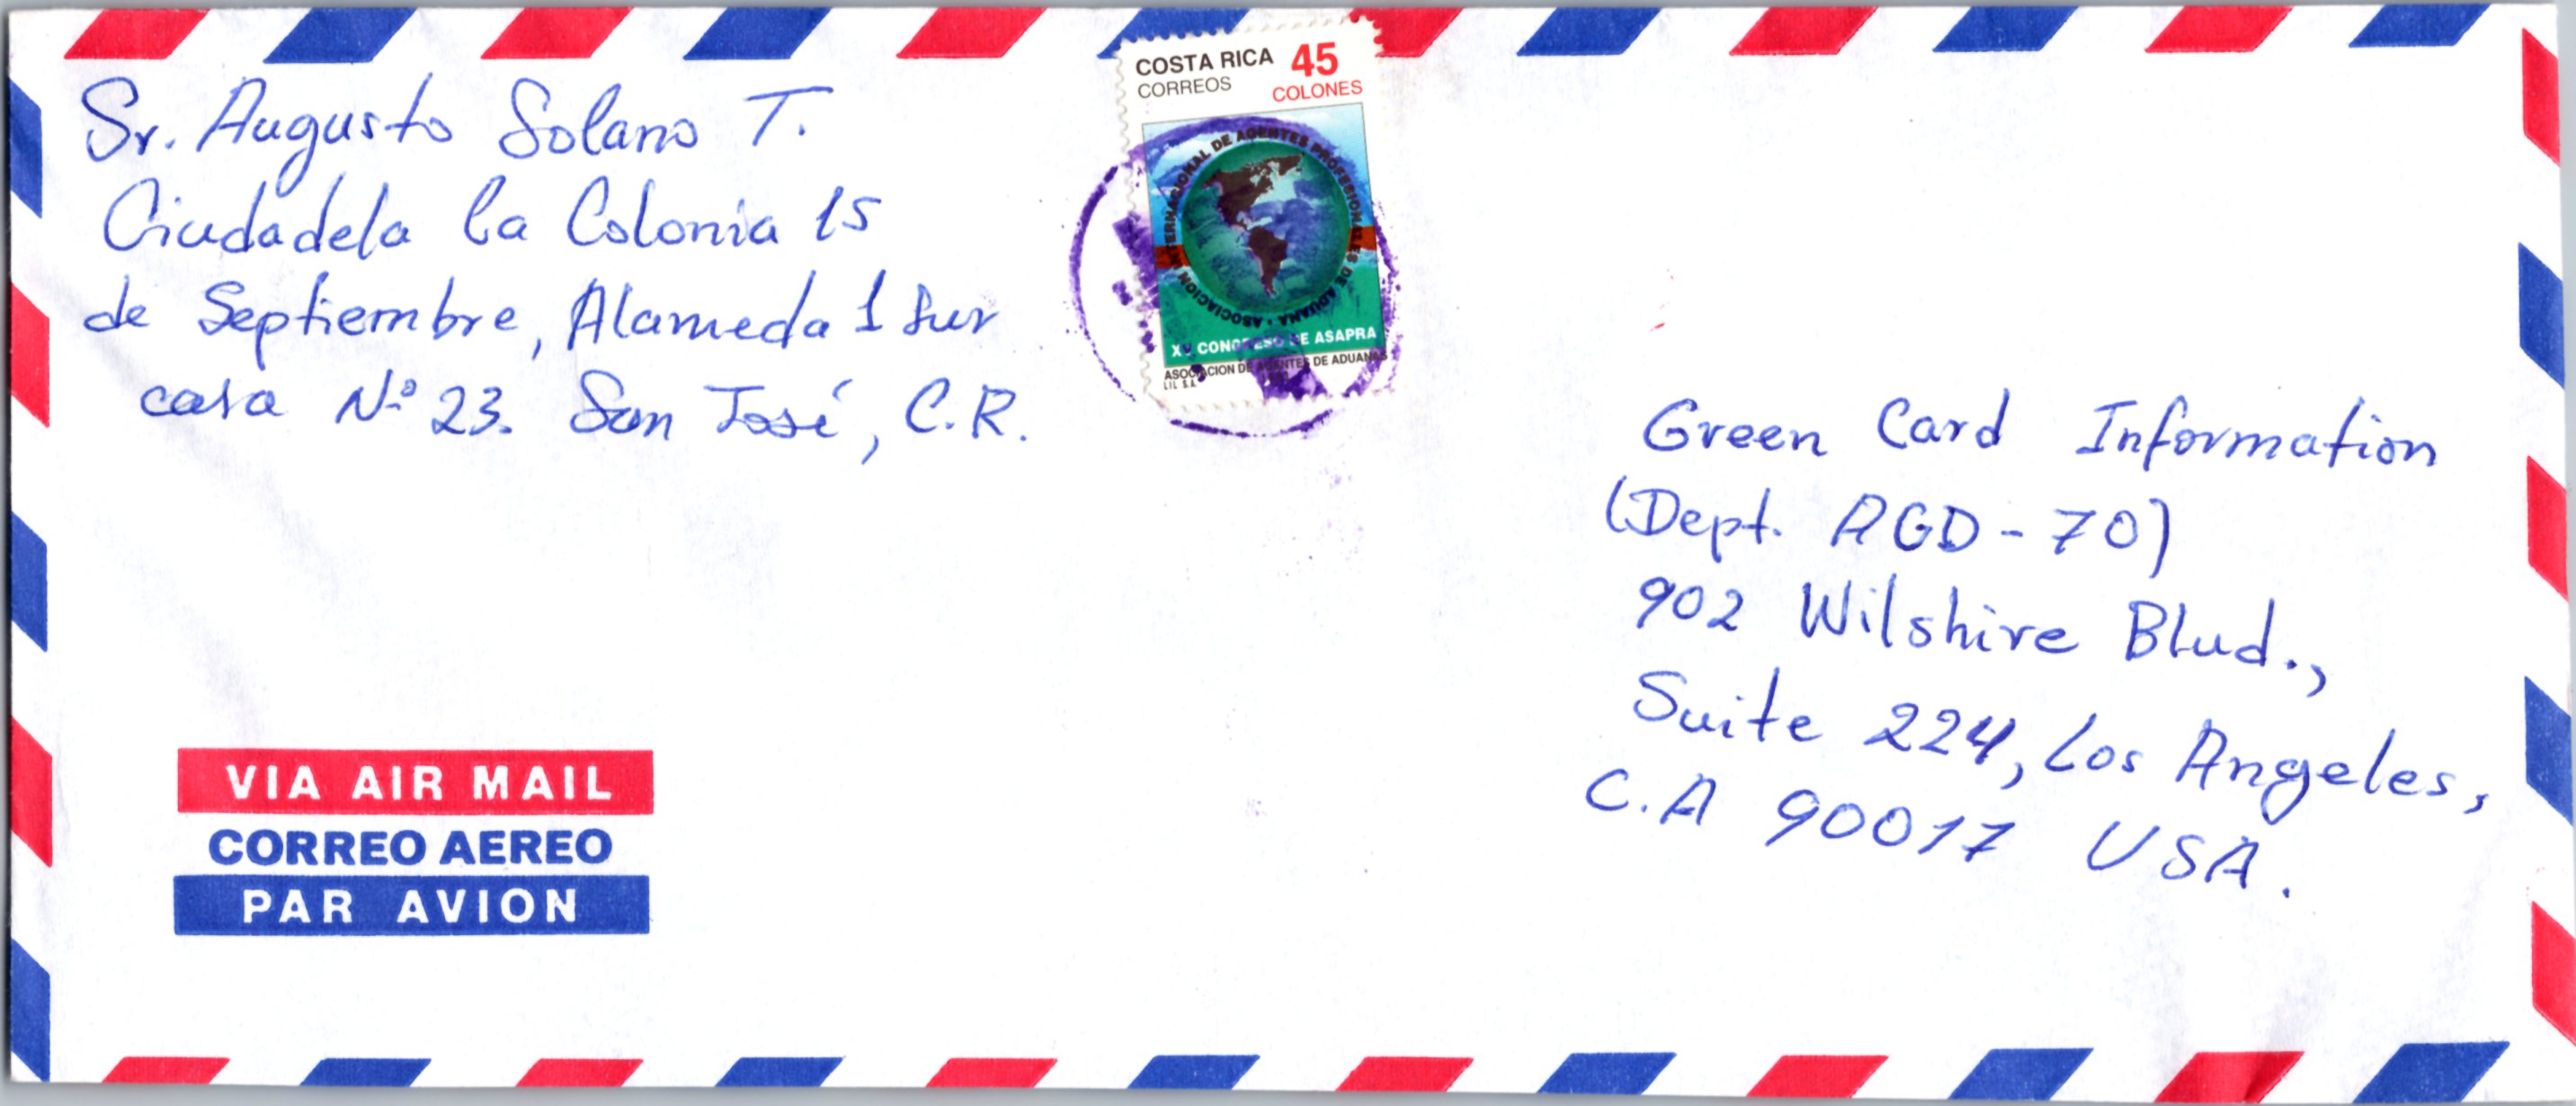 Sr. Augusto Solano T.
Ciudadela la Colonia 15
de Septiembre, Alameda 1 sur
casa Nº 23. San José, C.R.
COSTA RICA 45
CORREOS COLONES
ASOCIACION INTERNACIONAL DE AGENTES PROFESIONALES DE ADUANA •
CONGRESO DE ASAPRA
ASOCIACION DE AGENTES DE ADUANAS
LIL S.A.
Green Card Information
(Dept. AGD-70)
902 Wilshire Blud.,
Suite 224, Los Angeles,
C.A 90017 USA.
VIA AIR MAIL
CORREO AEREO
PAR AVION